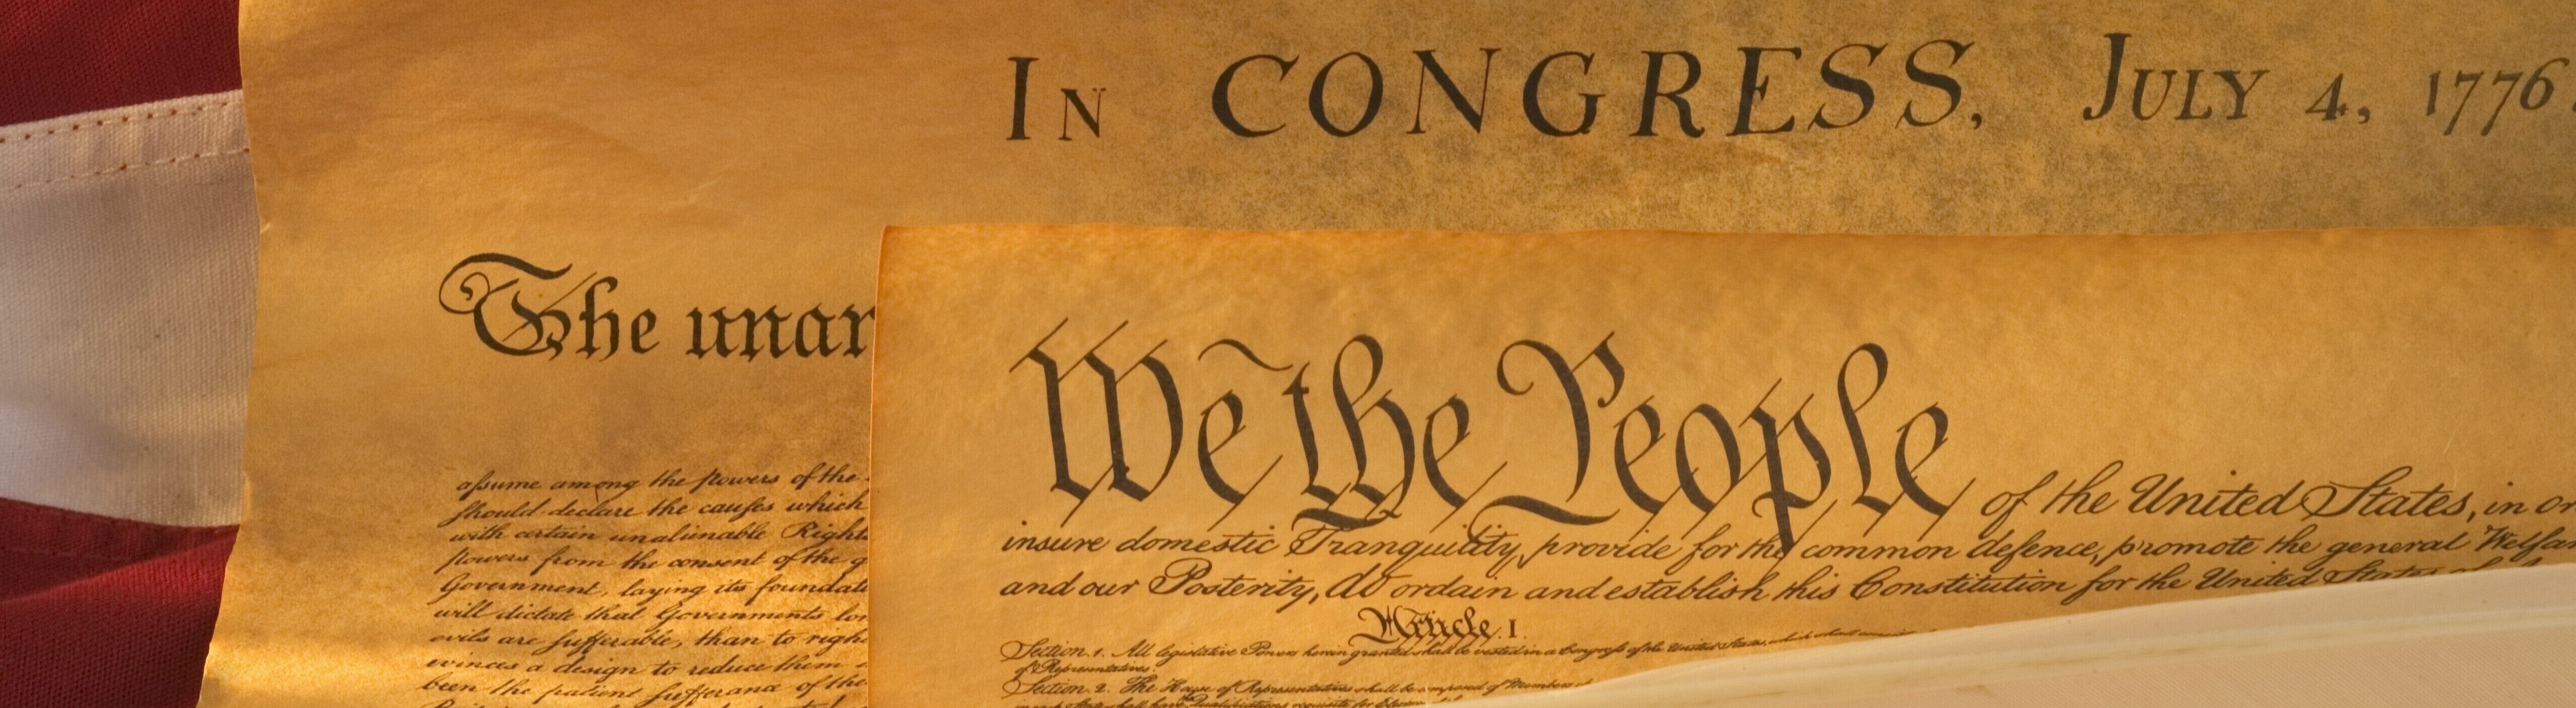 In CONGRESS, July 4, 1776
The unan
assume among the powers of the
should declare the causes which
with certain unalienable Rights
powers from the consent of the g
Government, laying its foundati
will dictate that Governments lon
evils are sufferable, than to righ
evinces a design to reduce them
been the patient sufferance of the
We the People of the United States, in or
insure domestic Tranquility, provide for the common defence, promote the general Welfa
and our Posterity, do ordain and establish this Constitution for the United States of
Article. I.
Section. 1. All legislative Powers herein granted shall be vested in a Congress of the United States, which shall
of Representatives.
Section. 2. The House of Representatives shall be composed of Members
each State shall have Qualifications requisite for Electors